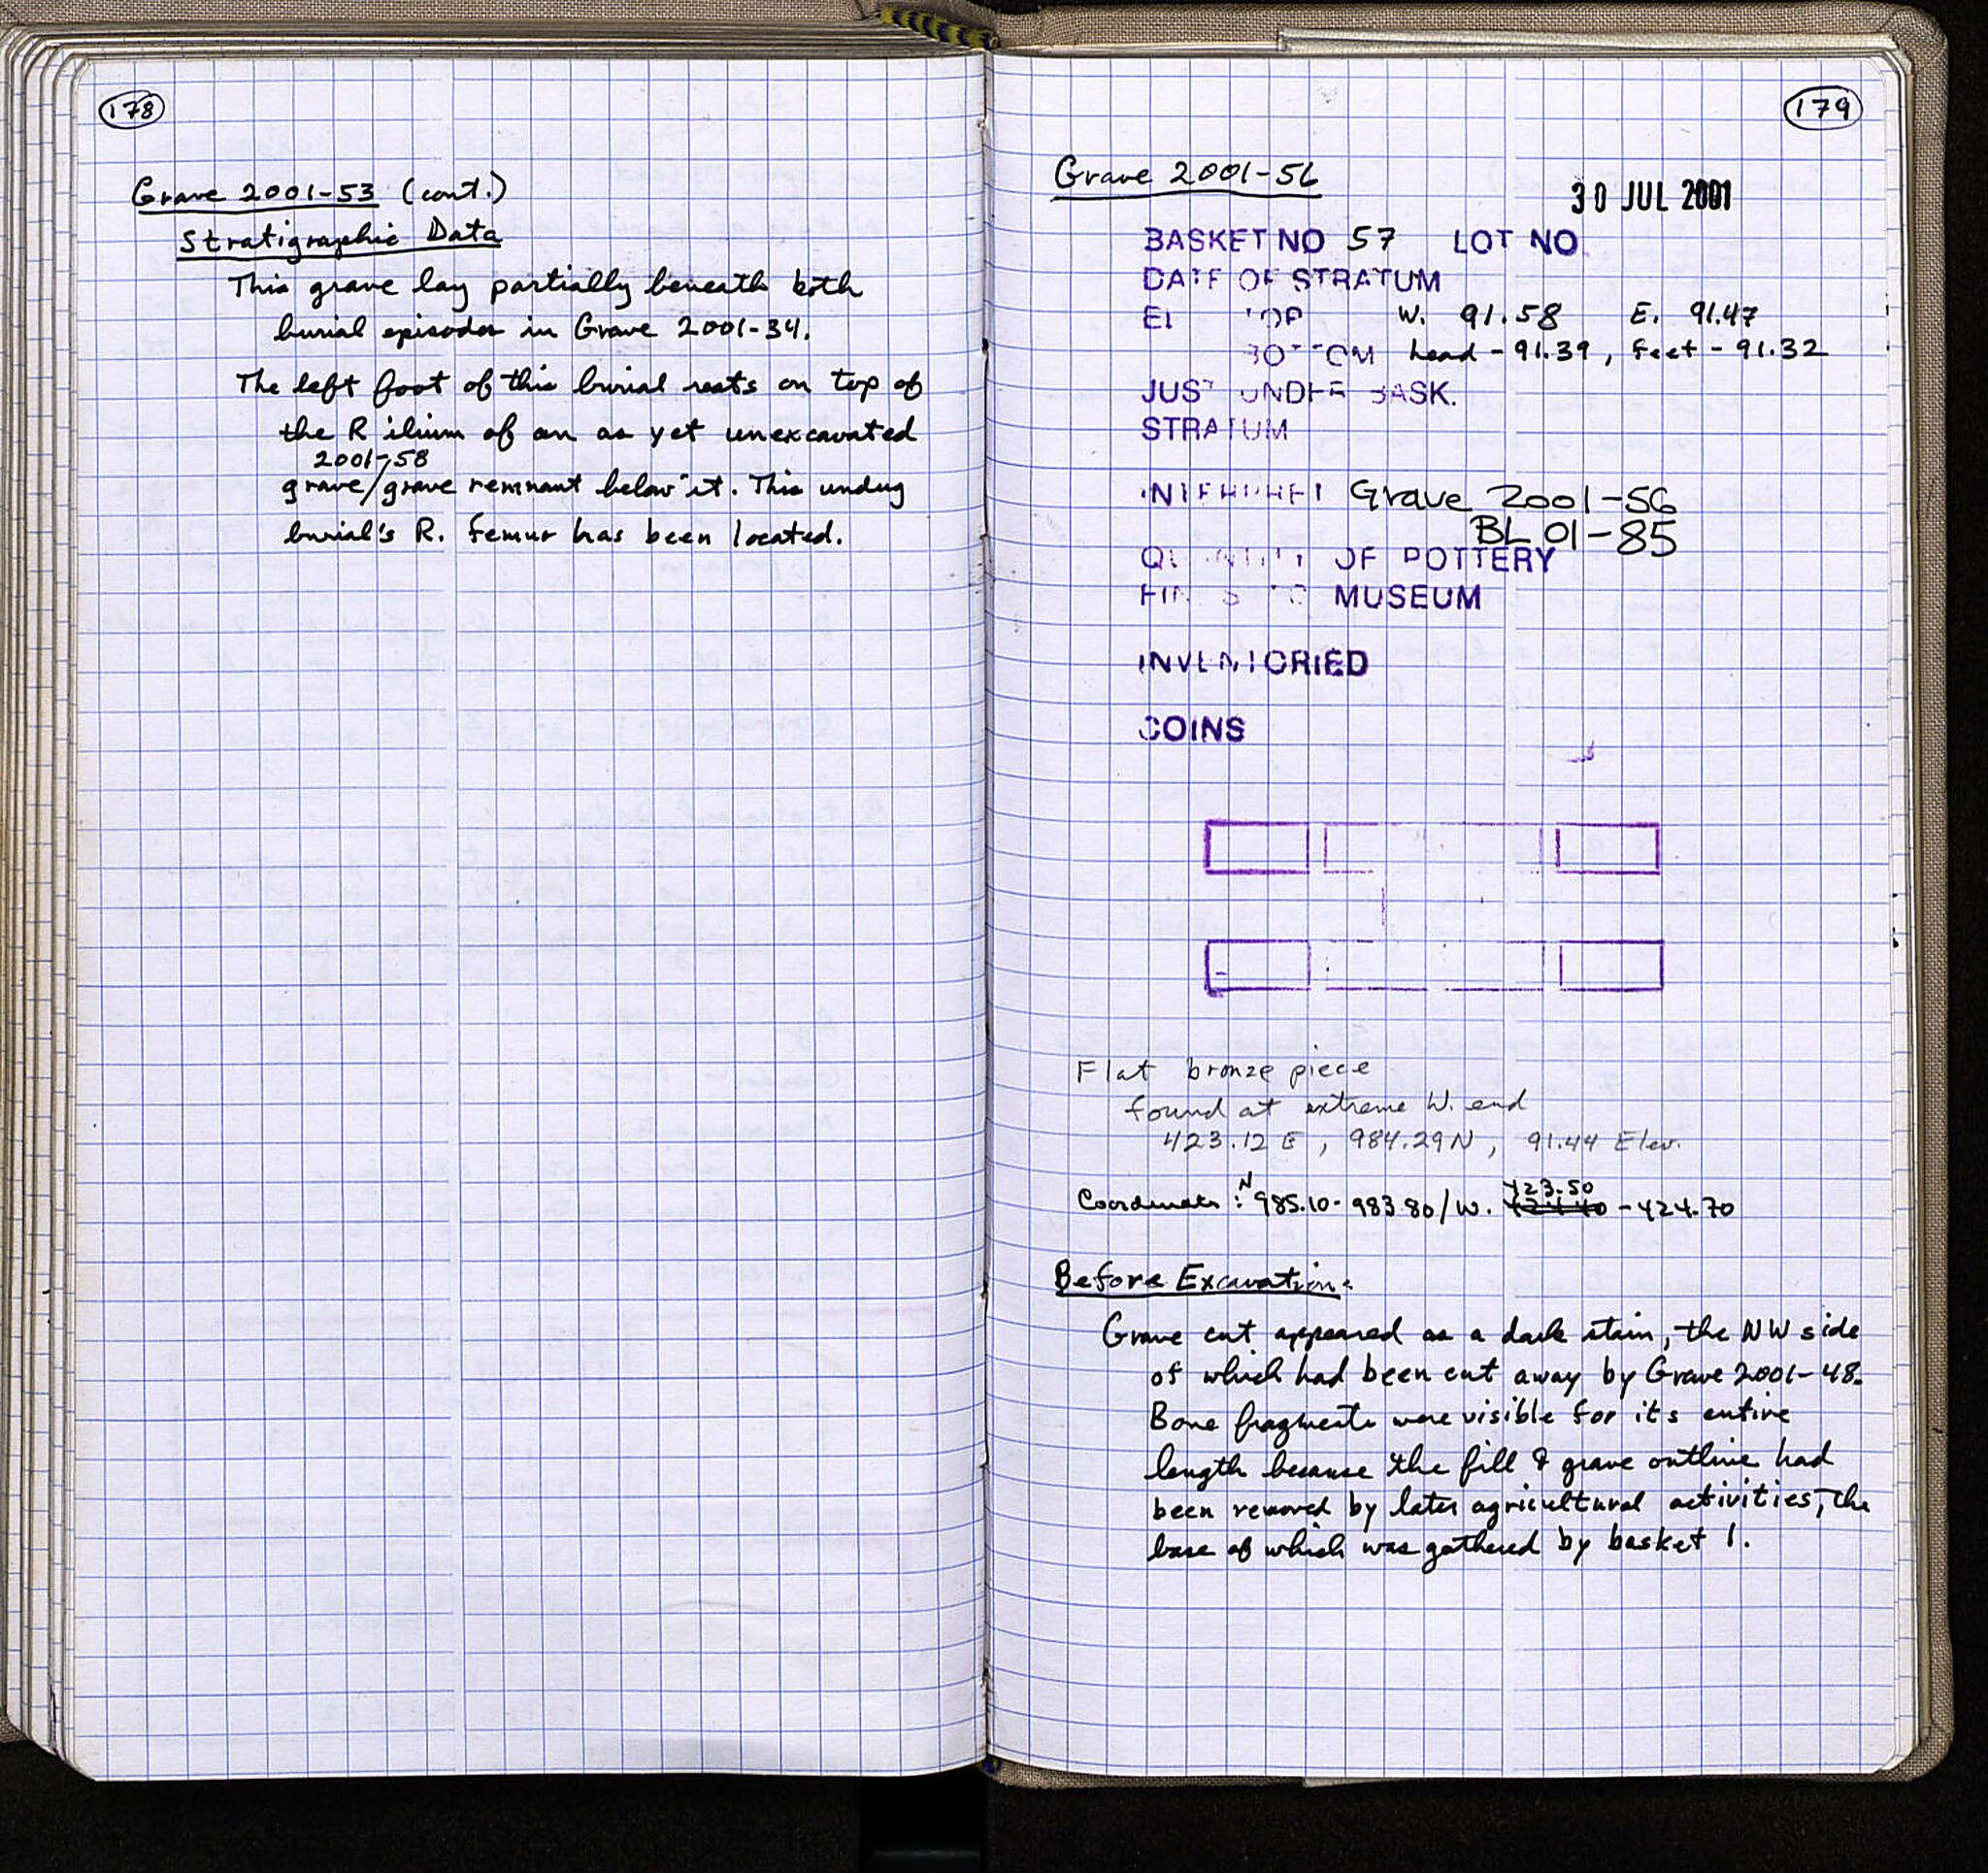 178
Grave 2001-53 (cont.)
Stratigraphic Data
This grave lay partially beneath both
burial episodes in Grave 2001-34.
The left foot of this burial rests on top of
the R ilium of an as yet unexcavated
2001-58
grave/grave remnant below it. This undug
burial's R. femur has been located.
179
Grave 2001-56
30 JUL 2001
BASKET NO 57 LOT NO.
DATE OF STRATUM
EL TOP W. 91.58 E. 91.47
BOTTOM head - 91.39, feet - 91.32
JUST UNDER BASK.
STRATUM
INTERPRET Grave 2001-56
BL 01-85
QUANTITY OF POTTERY
FINDS TO MUSEUM
INVENTORIED
COINS
Flat bronze piece
found at extreme W. end
423.12 E, 984.29 N, 91.44 Elev.
Coordinates: N 985.10-983.80/W. 423.50 - 424.70
Before Excavation:
Grave cut appeared as a dark stain, the NW side
of which had been cut away by Grave 2001-48.
Bone fragments were visible for its entire
length because the fill & grave outline had
been removed by later agricultural activities, the
base of which was gathered by basket 1.